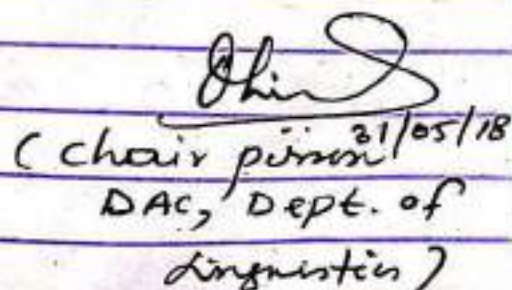 31/05/18
(Chair person
DAC, Dept. of
Linguistics)